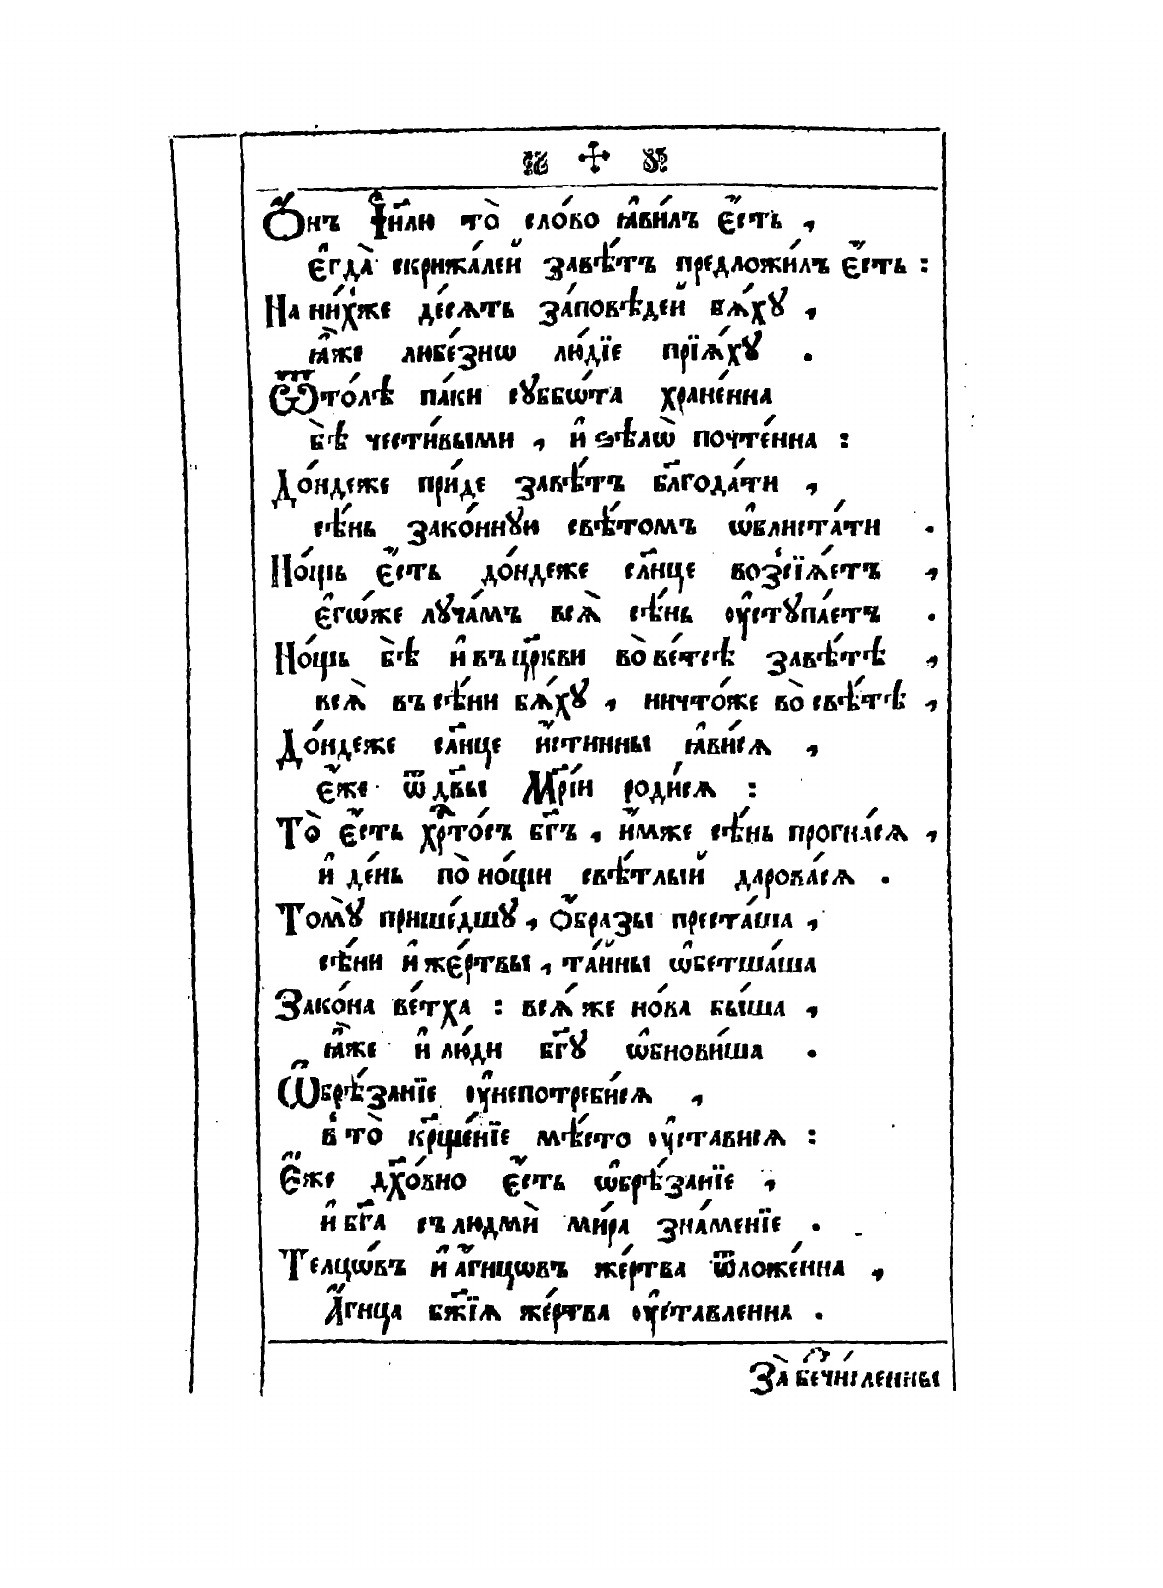 Ѻ҆́нъ І҆и҃лю то̀ сло́во ꙗ҆ви́лъ є҆́сть ,
є҆гда̀ скрижа́лей завѣ́тъ предложи́лъ є҆́сть :
На ни́хже де́сѧть за́повѣдей бѧ́хꙋ ,
ꙗ҆̀же любе́знѡ лю́дїе прїѧ́хꙋ .
Ѿто́лѣ па́ки сꙋббѡ́та хране́нна
бѣ̀ чести́выми , и҆ ѕѣлѡ̀ почте́нна :
До́ндеже прїи́де завѣ́тъ бл҃года́ти ,
сѣ́нь зако́ннꙋю свѣ́томъ ѡ҆блиста́ти .
Но́щь є҆́сть до́ндеже сл҃нце возсїѧ́етъ ,
є҆гѡ́же лꙋча́мъ всѧ̀ сѣ́нь ᲂу҆стꙋпа́етъ .
Но́щь бѣ̀ и҆ въ цр҃кви во ве́тсѣ завѣ́тѣ ,
всѧ̀ въ сѣ́ни бѧ́хꙋ , ничто́же во свѣ́тѣ ,
До́ндеже сл҃нце и҆́стинны ꙗ҆ви́сѧ ,
є҆́же ѿ дв҃ы Мр҃і́и роди́сѧ :
То̀ є҆́сть хрⷭ҇то́съ бг҃ъ , и҆́мже сѣ́нь прогна́сѧ ,
и҆ де́нь по но́щи свѣ́тлый дарова́сѧ .
Томꙋ̀ прише́дшꙋ , ѻ҆́бразы преста́ша ,
сѣ́ни и҆ же́ртвы , та́йны ѡ҆бетша́ша
Зако́на ве́тха : всѧ́ же но́ва бы́ша ,
ꙗ҆̀же и҆ лю́ди бг҃ꙋ ѡ҆бнови́ша .
Ѡ҆брѣ́занїе ᲂу҆непотреби́сѧ ,
в то̀ кр҃ще́нїе мѣ́сто ᲂу҆ста́висѧ :
Є҆́же дх҃о́вно є҆́сть ѡ҆брѣ́занїе ,
и҆ бг҃а съ людмѝ ми́ра зна́менїе .
Телцѡ́въ и҆ а҆́гнцѡвъ же́ртва ѿложе́нна ,
А҆́гнца бж҃їѧ же́ртва ᲂу҆ста́вленна .
За̀ бе́ⷥчи́сленны